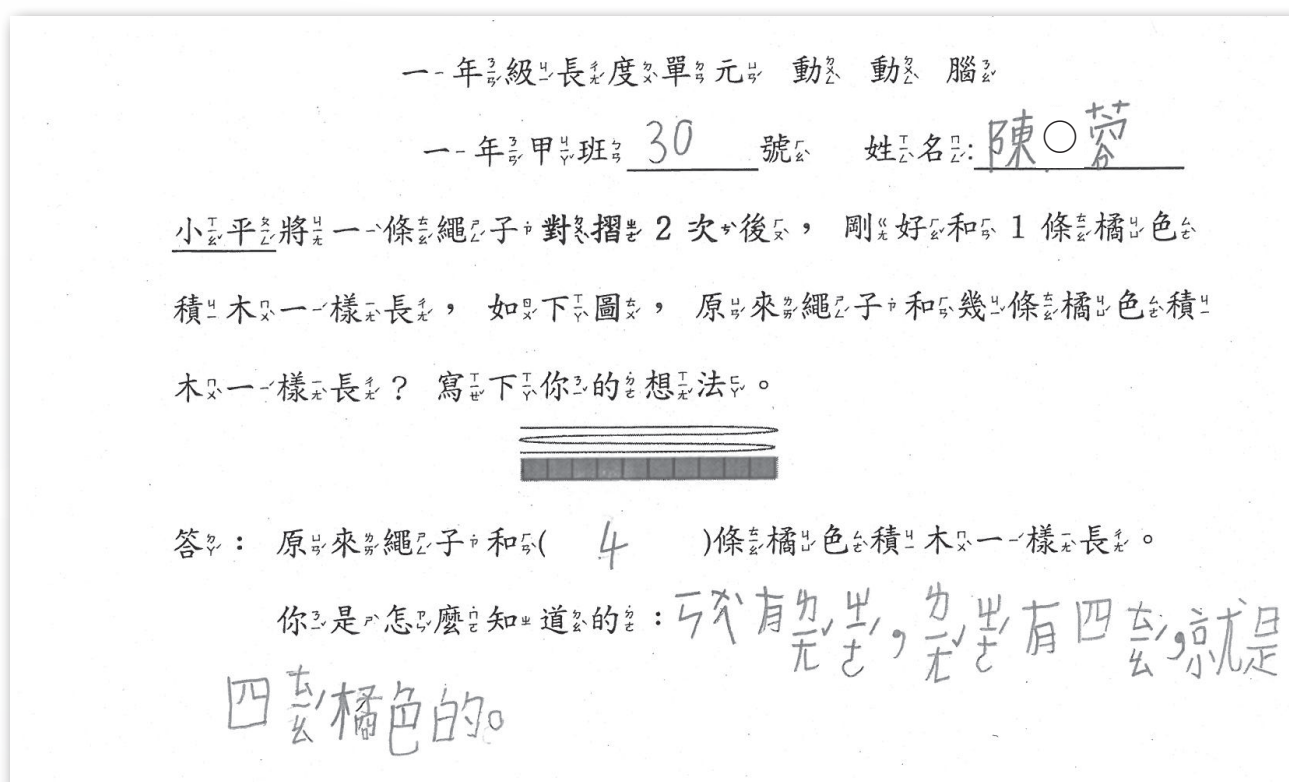 一年級長度單元 動 動 腦
一年甲班 30 號 姓名:陳○蓉
小平將一條繩子對摺 2 次後，剛好和 1 條橘色
積木一樣長，如下圖，原來繩子和幾條橘色積
木一樣長？寫下你的想法。
答：原來繩子和( 4 )條橘色積木一樣長。
你是怎麼知道的：ㄎㄨㄞˋ有ㄌㄤˇㄓㄜˊ，ㄌㄤˇㄓㄜˊ有四ㄊㄠˊ，就是
四ㄊㄠˊ橘色的。